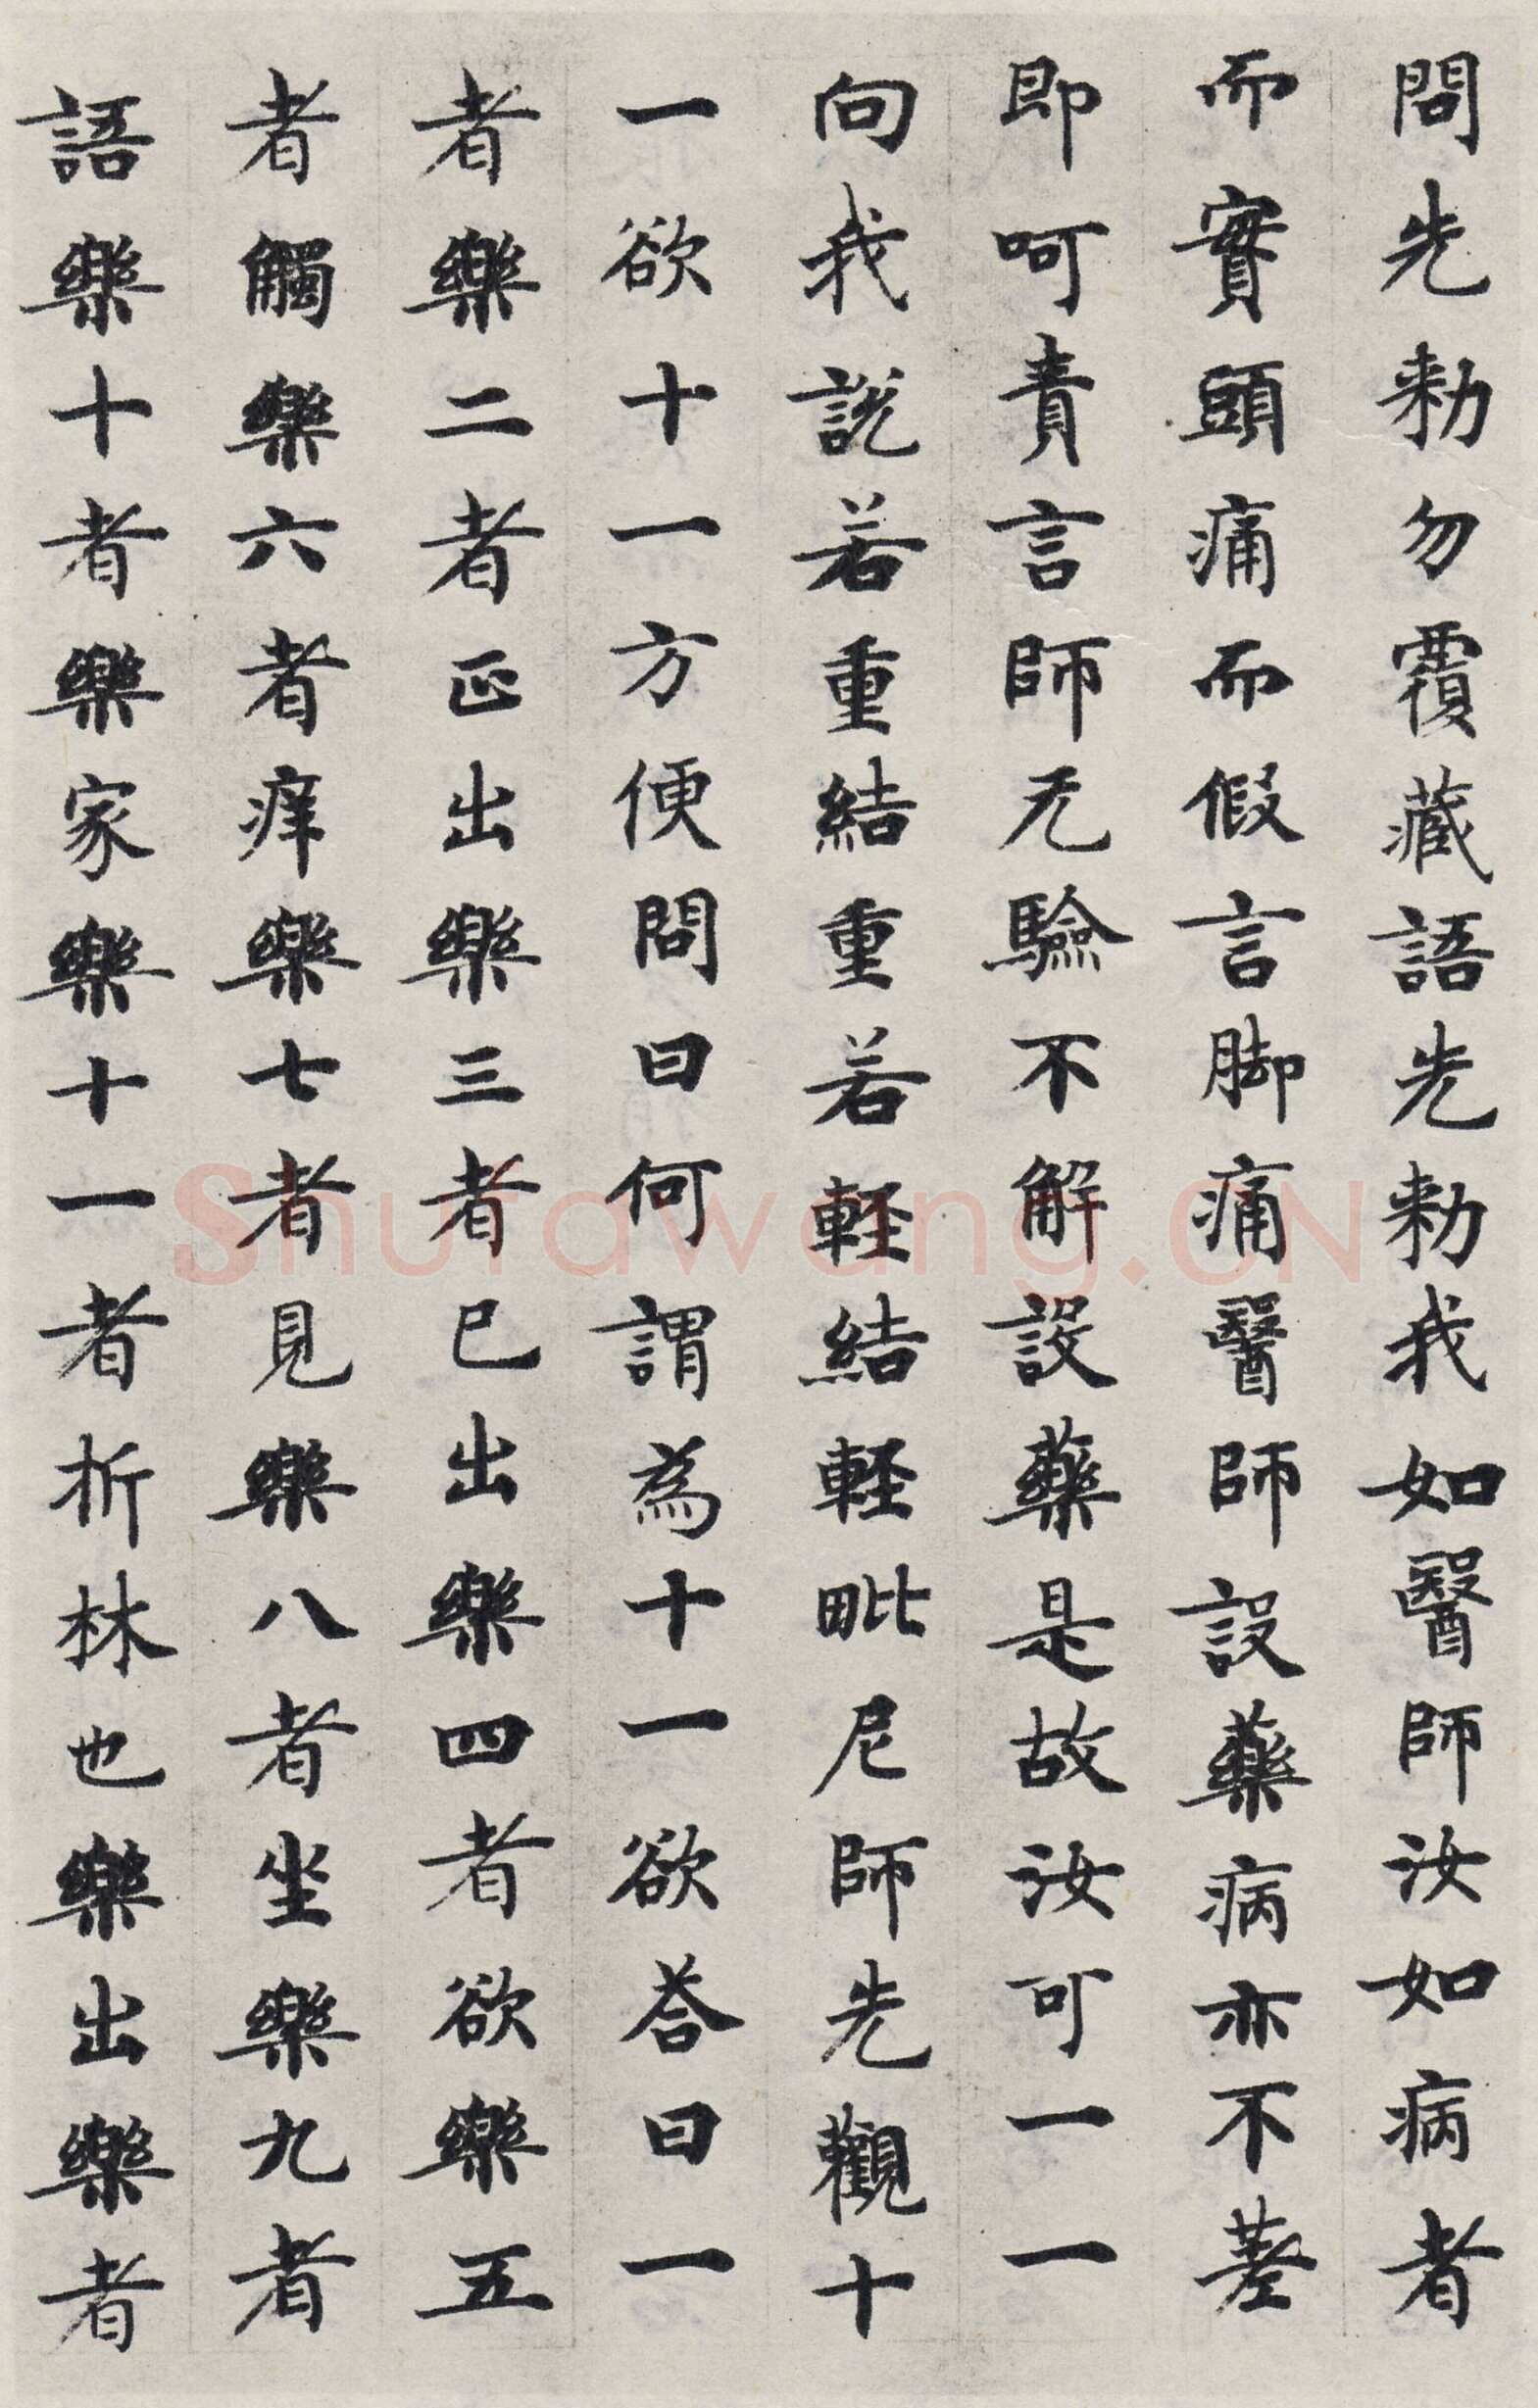 問先勑勿覆藏語先勑我如醫師汝如病者
而實頭痛而假言脚痛醫師設藥病亦不差
即呵責言師无驗不解設藥是故汝可一一
向我說若重結重若輕結輕毗尼師先觀十
一欲十一方便問曰何謂為十一欲荅曰一
者樂二者正出樂三者已出樂四者欲樂五
者觸樂六者痒樂七者見樂八者坐樂九者
語樂十者樂家樂十一者折林也樂出樂者
Shufawang.CN